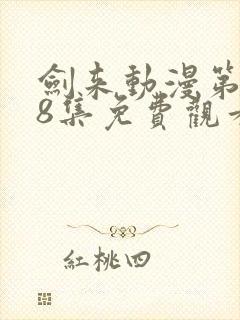 劍來動漫第
8集免費觀
紅桃四